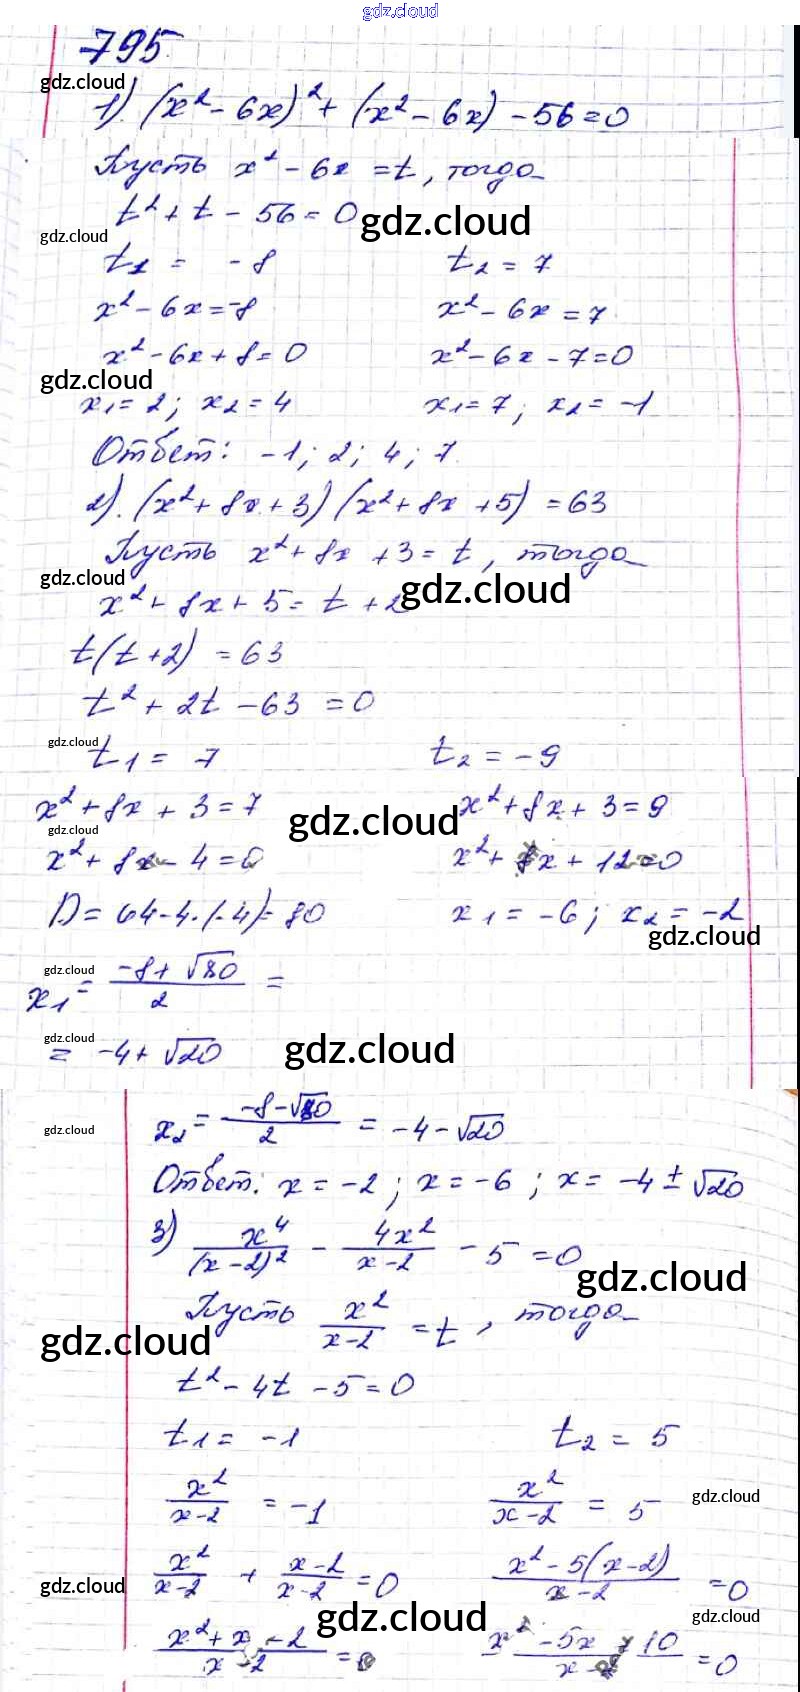 gdz.cloud
795
gdz.cloud
1). (x² - 6x)² + (x² - 6x) - 56 = 0
Пусть x² - 6x = t, тогда
t² + t - 56 = 0 gdz.cloud
gdz.cloud
t₁ = -8 t₂ = 7
x² - 6x = -8 x² - 6x = 7
x² - 6x + 8 = 0 x² - 6x - 7 = 0
gdz.cloud
x₁ = 2; x₂ = 4 x₁ = 7; x₂ = -1
Ответ: -1; 2; 4; 7
2). (x² + 8x + 3)(x² + 8x + 5) = 63
Пусть x² + 8x + 3 = t, тогда
gdz.cloud gdz.cloud
x² + 8x + 5 = t + 2
t(t + 2) = 63
t² + 2t - 63 = 0
gdz.cloud
t₁ = 7 t₂ = -9
x² + 8x + 3 = 7 x² + 8x + 3 = 9
gdz.cloud gdz.cloud
x² + 8x - 4 = 0 x² + 8x + 12 = 0
D = 64 - 4·(-4) = 80 x₁ = -6; x₂ = -2
gdz.cloud
gdz.cloud
x₁ = (-8 + √80)/2 =
gdz.cloud
= -4 + √20 gdz.cloud
gdz.cloud
x₂ = (-8 - √80)/2 = -4 - √20
Ответ: x = -2; x = -6; x = -4 ± √20
3) x⁴/(x - 2)² - 4x²/(x - 2) - 5 = 0
gdz.cloud
Пусть x²/(x - 2) = t, тогда
gdz.cloud
t² - 4t - 5 = 0
t₁ = -1 t₂ = 5
x²/(x - 2) = -1 x²/(x - 2) = 5
gdz.cloud
x²/(x - 2) + (x - 2)/(x - 2) = 0 (x² - 5(x - 2))/(x - 2) = 0
gdz.cloud gdz.cloud gdz.cloud
(x² + x - 2)/(x - 2) = 0 (x² - 5x + 10)/(x - 2) = 0